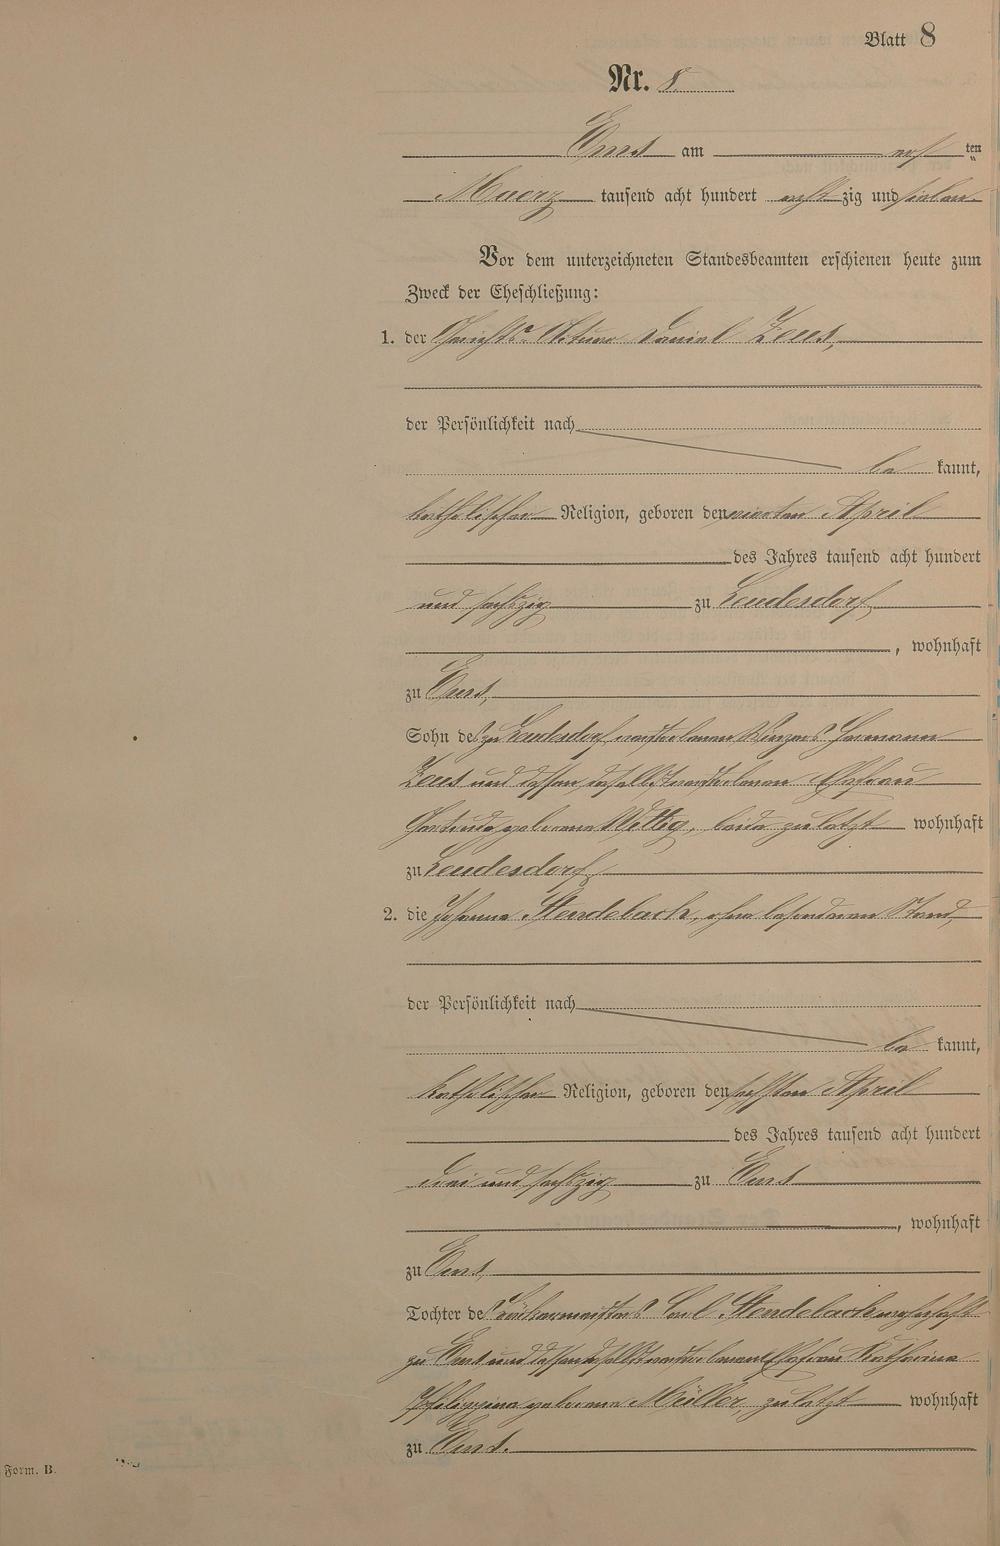 Blatt 8
Nr. 8
Ems am ersten
Maerz tausend acht hundert achtzig und sieben.
Vor dem unterzeichneten Standesbeamten erschienen heute zum
Zweck der Eheschließung:
1. der Gerichts-Aktuar Daniel Zeus,
der Persönlichkeit nach
be kannt,
katholischer Religion, geboren den vierten April
des Jahres tausend acht hundert
und sechszig zu Leudesdorf,
, wohnhaft
zu Ems,
Sohn des zu Leudesdorf verstorbenen Winzers Hermann
Zeus und dessen daselbst verstorbenen Ehefrau
Gertrude geborene Wittig, beide zuletzt wohnhaft
zu Leudesdorf,
2. die Johanna Stendebach, ohne besonderen Stand,
der Persönlichkeit nach
be kannt,
katholischer Religion, geboren den sechsten April
des Jahres tausend acht hundert
drei und sechszig zu Ems
, wohnhaft
zu Ems,
Tochter des Bäckermeisters Carl Stendebach wohnhaft
zu Ems und dessen daselbst verstorbenen Ehefrau Katharina
geborene Müller, zuletzt wohnhaft
zu Ems.
Form. B.